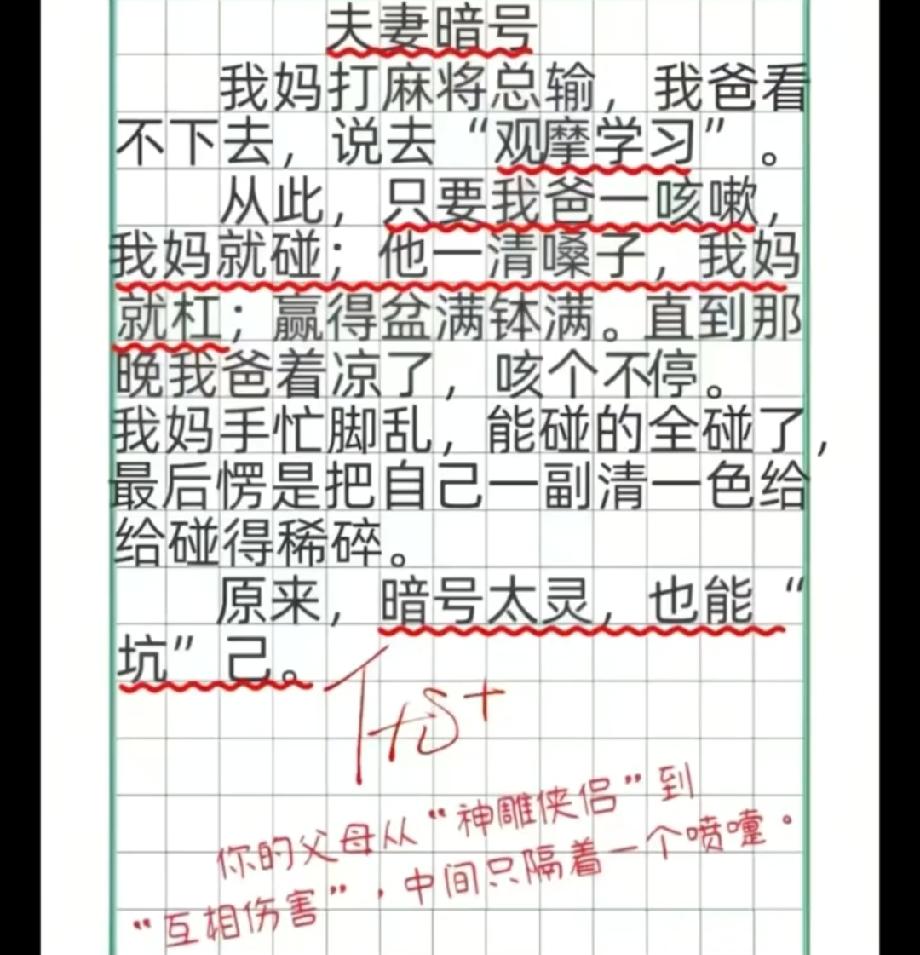 夫妻暗号
我妈打麻将总输，我爸看
不下去，说去“观摩学习”。
从此，只要我爸一咳嗽，
我妈就碰；他一清嗓子，我妈
就杠；赢得盆满钵满。直到那
晚我爸着凉了，咳个不停。
我妈手忙脚乱，能碰的全碰了，
最后愣是把自己一副清一色给
给碰得稀碎。
原来，暗号太灵，也能“
坑”己。
你的父母从“神雕侠侣”到
“互相伤害”，中间只隔着一个喷嚏。